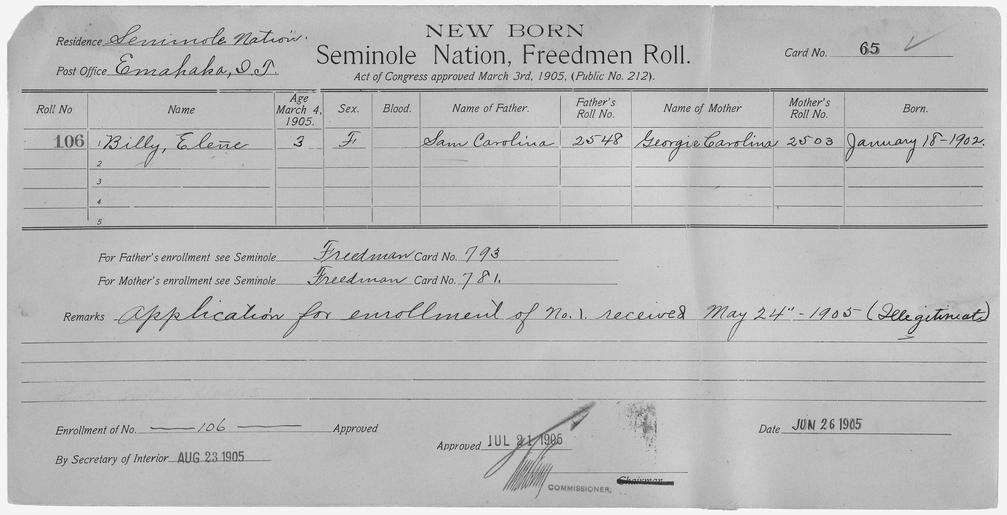 NEW BORN
Residence Seminole Nation.
Seminole Nation, Freedmen Roll.
Card No. 65
Post Office Emahaka, I.T.
Act of Congress approved March 3rd, 1905, (Public No. 212).
Roll No Name Age March 4, 1905. Sex. Blood. Name of Father. Father's Roll No. Name of Mother Mother's Roll No. Born.
106 1 Billy, Elene 3 F Sam Carolina 2548 Georgie Carolina 2503 January 18-1902.
2
3
4
5
For Father's enrollment see Seminole Freedman Card No. 793
For Mother's enrollment see Seminole Freedman Card No. 781.
Remarks Application for enrollment of No. 1. received May 24" - 1905 (Illegitimate)
Enrollment of No. 106 Approved
Date JUN 26 1905
Approved JUL 21 1905
By Secretary of Interior AUG 23 1905
Chairman
COMMISSIONER.